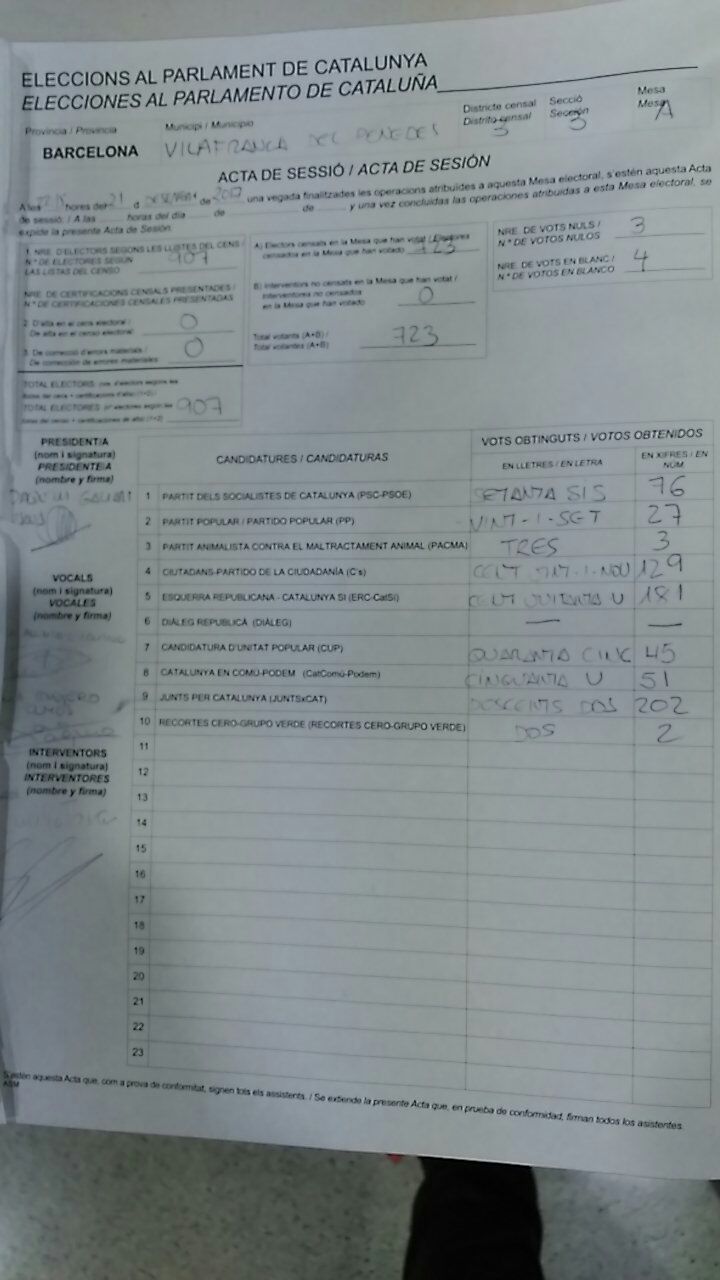 ELECCIONS AL PARLAMENT DE CATALUNYA
ELECCIONES AL PARLAMENTO DE CATALUÑA
Provincia / Provincia
BARCELONA
Municipi / Municipio
VILAFRANCA DEL PENEDES
Districte censal
Distrito censal
3
Secció
Sección
3
Mesa
Mesa
A
ACTA DE SESSIÓ / ACTA DE SESIÓN
A les hores del 21 d de 2017 una vegada finalitzades les operacions atribuïdes a aquesta Mesa electoral, s'estén aquesta Acta
de sessió. / A las horas del día de de y una vez concluidas las operaciones atribuidas a esta Mesa electoral, se
expide la presente Acta de Sesión.
1. NRE. D'ELECTORS SEGONS LES LLISTES DEL CENS /
N.º DE ELECTORES SEGÚN
LAS LISTAS DEL CENSO
907
NRE. DE CERTIFICACIONS CENSALS PRESENTADES /
N.º DE CERTIFICACIONES CENSALES PRESENTADAS
2. D'alta en el cens electoral /
De alta en el censo electoral
0
3. De correcció d'errors materials /
De corrección de errores materiales
0
TOTAL ELECTORS
TOTAL ELECTORES
907
A) Electors censats en la Mesa que han votat / Electores
censados en la Mesa que han votado
723
B) Interventors no censats en la Mesa que han votat /
Interventores no censados
en la Mesa que han votado
0
Total votants (A+B) /
Total votantes (A+B)
723
NRE. DE VOTS NULS /
N.º DE VOTOS NULOS
3
NRE. DE VOTS EN BLANC /
N.º DE VOTOS EN BLANCO
4
PRESIDENT/A
(nom i signatura)
PRESIDENTE/A
(nombre y firma)
VOCALS
(nom i signatura)
VOCALES
(nombre y firma)
INTERVENTORS
(nom i signatura)
INTERVENTORES
(nombre y firma)
CANDIDATURES / CANDIDATURAS
VOTS OBTINGUTS / VOTOS OBTENIDOS
EN LLETRES / EN LETRA
EN XIFRES / EN NÚM
1 PARTIT DELS SOCIALISTES DE CATALUNYA (PSC-PSOE) SETANTA SIS 76
2 PARTIT POPULAR / PARTIDO POPULAR (PP) VINT-I-SET 27
3 PARTIT ANIMALISTA CONTRA EL MALTRACTAMENT ANIMAL (PACMA) TRES 3
4 CIUTADANS-PARTIDO DE LA CIUDADANÍA (C's) CENT VINT-I-NOU 129
5 ESQUERRA REPUBLICANA - CATALUNYA SÍ (ERC-CatSí) CENT VUITANTA U 181
6 DIÀLEG REPUBLICÀ (DIÀLEG) — —
7 CANDIDATURA D'UNITAT POPULAR (CUP) QUARANTA CINC 45
8 CATALUNYA EN COMÚ-PODEM (CatComú-Podem) CINQUANTA U 51
9 JUNTS PER CATALUNYA (JUNTSxCAT) DOSCENTS DOS 202
10 RECORTES CERO-GRUPO VERDE (RECORTES CERO-GRUPO VERDE) DOS 2
11
12
13
14
15
16
17
18
19
20
21
22
23
S'estén aquesta Acta que, com a prova de conformitat, signen tots els assistents. / Se extiende la presente Acta que, en prueba de conformidad, firman todos los asistentes.